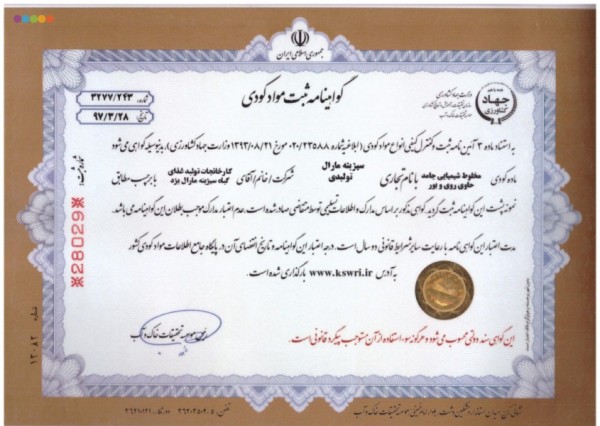 جمهوری اسلامی ایران
گواهینامه ثبت مواد کودی
شماره: ۳۲۷۷/۲۴۳
تاریخ: ۹۷/۳/۲۸
وزارت جهاد کشاورزی
سازمان تحقیقات، آموزش و ترویج کشاورزی
موسسه تحقیقات خاک و آب
جهاد کشاورزی
به استناد ماده ۳ آئین نامه ثبت و کنترل کیفی انواع مواد کودی (ابلاغیه شماره ۰۲۰/۲۳۵۸۸ مورخ ۱۳۹۳/۰۸/۲۱ وزارت جهاد کشاورزی)، بدینوسیله گواهی می شود
ماده کودی مخلوط شیمیایی جامد حاوی روی و بور با نام تجاری سبزینه مارال تولیدی شرکت / خانم / آقای کارخانجات تولید غذای گیاه سبزینه مارال یزد با برچسب مطابق
نمونه پشت این گواهینامه ثبت گردید. گواهی مذکور بر اساس مدارک و اطلاعات تسلیمی توسط متقاضی صادر شده است. عدم اعتبار مدارک موجب بطلان این گواهینامه می باشد.
مدت اعتبار این گواهی نامه با رعایت سایر شرایط قانونی دو سال است. درجه اعتبار این گواهینامه و تاریخ انقضای آن در پایگاه جامع اطلاعات مواد کودی کشور
به آدرس www.kswri.ir بارگذاری شده است.
این گواهی سند دولتی محسوب می شود و هرگونه سوء استفاده از آن مستوجب پیگرد قانونی است.
رئیس موسسه تحقیقات خاک و آب
شماره ثبت:
※28029※
شماره ۱۳۰۸۲